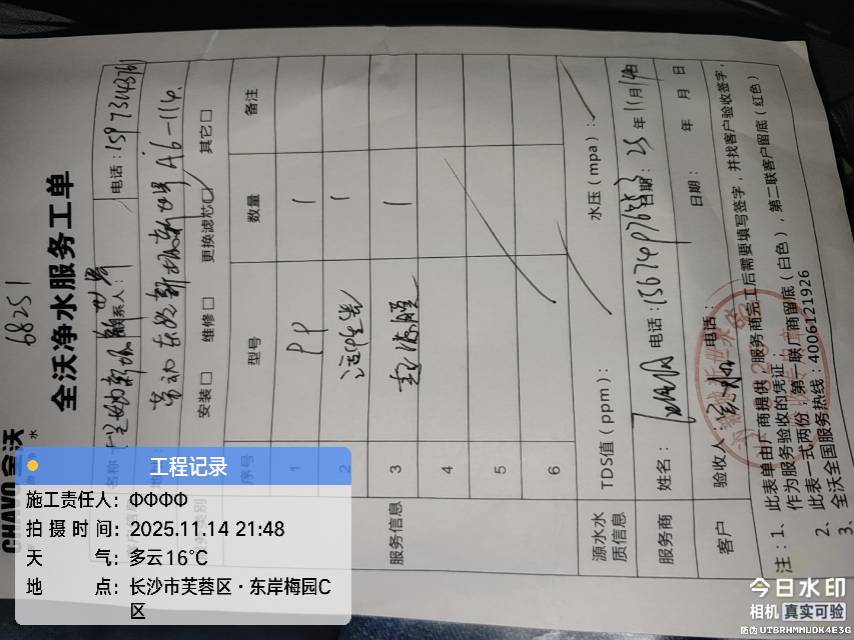 68251
CHAVO 全沃
全沃净水服务工单
名称 联系人： 电话：15973143761
劳动东路新城新世界A6-114.
安装□ 维修□ 更换滤芯□ 其它□
序号 型号 数量 备注
1 PP 1
2 活性炭 1
3 超滤膜 1
4
5
6
服务信息
源水水质信息 TDS值（ppm）： 水压（mpa）：
服务商 姓名： 电话： 日期：25年11月14日
客户 验收人 电话： 日期： 年 月 日
注：1、此表单由厂商提供，服务商完工后需要填写签字，并找客户验收签字，
作为服务验收的凭证。
2、此表一式两份：第一联厂商留底（白色），第二联客户留底（红色）
3、全沃全国服务热线：4006121926
工程记录
施工责任人：ФФФФ
拍摄时间：2025.11.14 21:48
天 气：多云16℃
地 点：长沙市芙蓉区·东岸梅园C
区
今日水印
相机 真实可验
防伪 UTBRHMMUDK4E3G